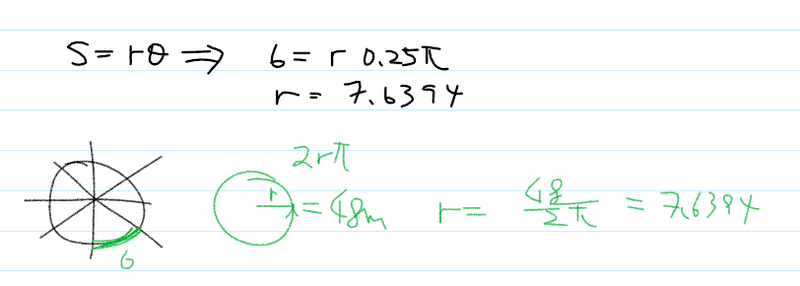 S = rθ ⇒ 6 = r 0.25π
r = 7.6394
6
2rπ
r = 48m
r = 48/2π = 7.6394